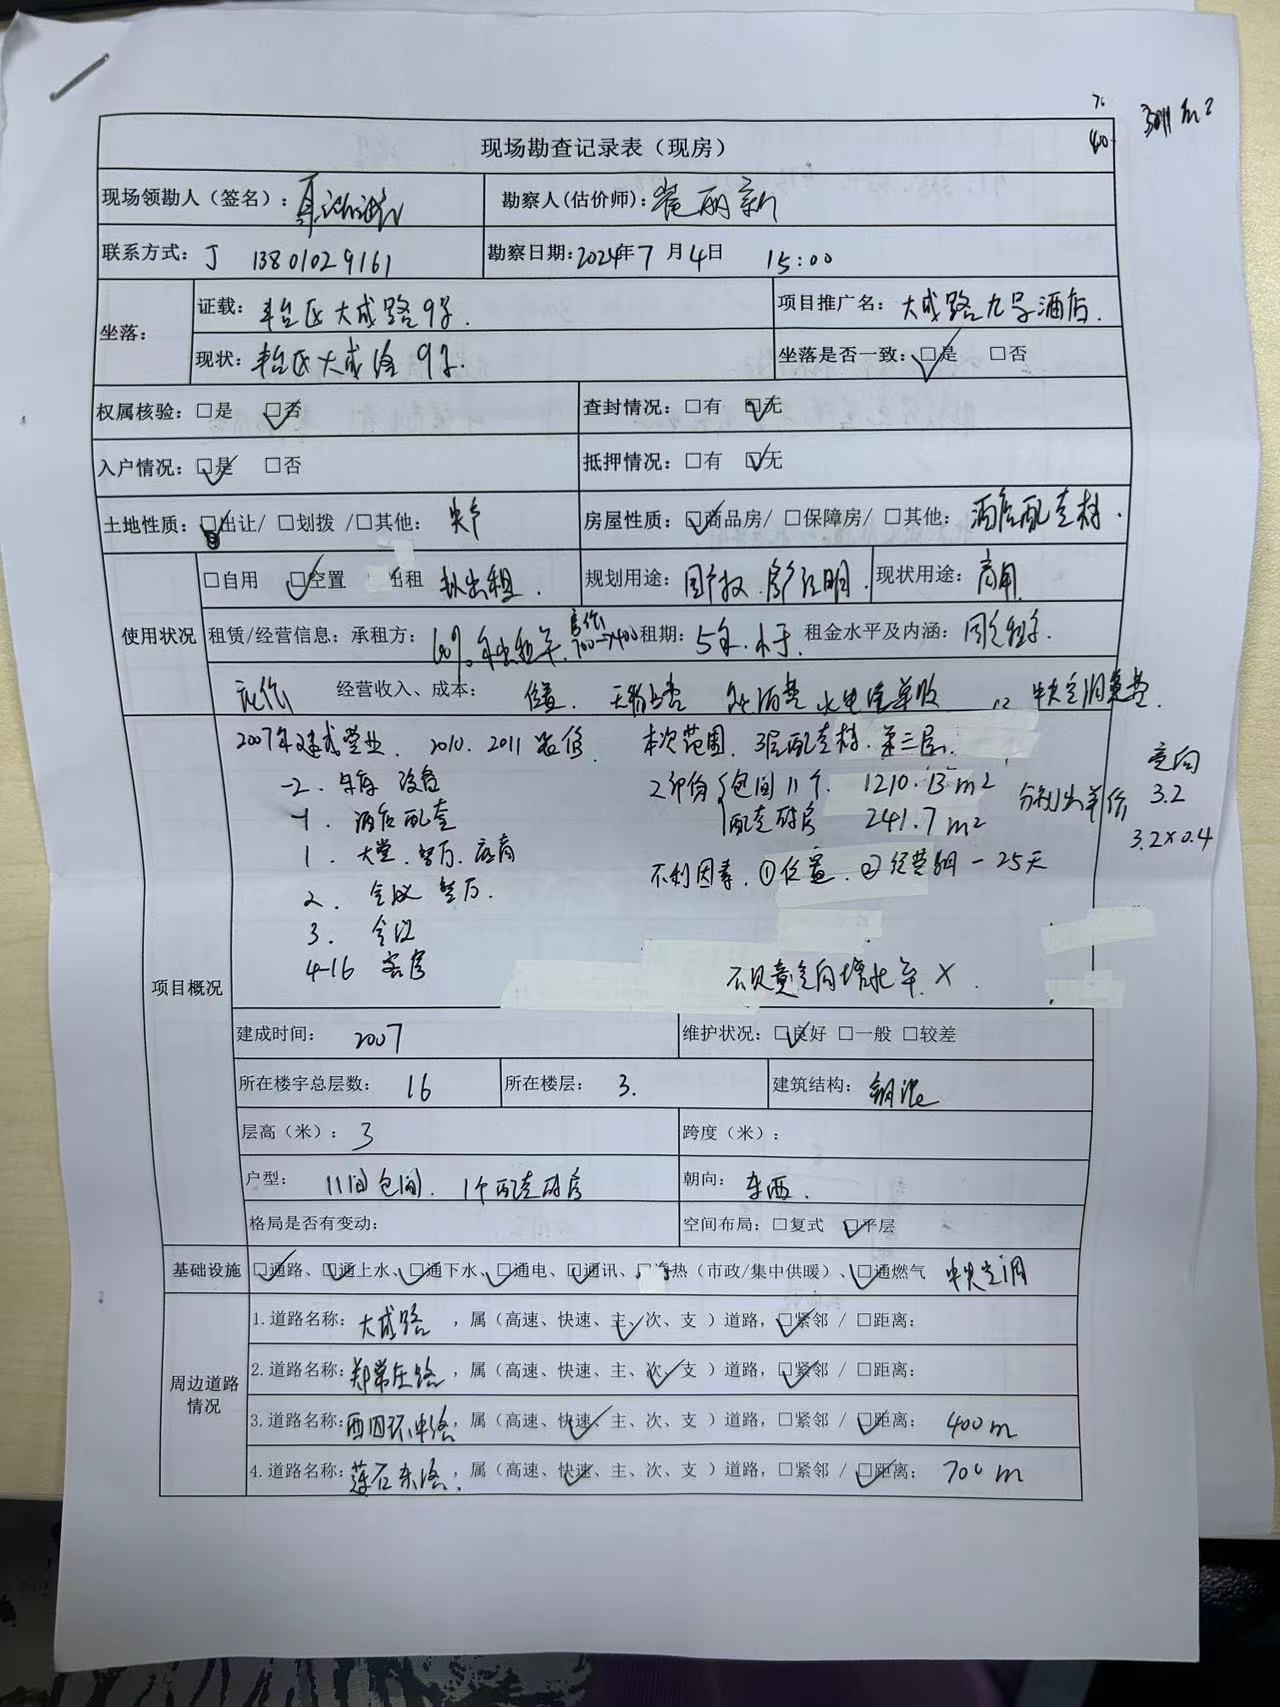 3011 m²
现场勘查记录表（现房）
现场领勘人（签名）： 勘察人(估价师)：崔丽新
联系方式：J 13801029161 勘察日期：2024年7月4日 15:00
坐落：
证载：丰台区大成路9号. 项目推广名：大成路九号酒店.
现状：丰台区大成路9号. 坐落是否一致：☑是 □否
权属核验：□是 ☑否 查封情况：□有 ☑无
入户情况：☑是 □否 抵押情况：□有 ☑无
土地性质：☑出让/ □划拨 /□其他： 房屋性质：☑商品房/ □保障房/ □其他：酒店配套楼.
使用状况
□自用 ☑空置 出租 拟出租. 规划用途： 房产证明. 现状用途：商用
租赁/经营信息：承租方：60% 出租率. 700→400 租期：5年. 租金水平及内涵：
经营收入、成本：位置. 水电 单收 中央空调免费.
项目概况
2007年建成营业. 2010. 2011 装修. 本次范围. 3层配套楼. 第三层.
-2. 车库 设备
-1. 酒店配套
1. 大堂. 餐厅.
2. 会议 餐厅.
3. 会议
4-16 客房
2部分 包间11个. 1210.13m²
配套用房 241.7m²
分别出单价
意向
3.2
3.2×0.4
不利因素. ①位置. ②经营期-25天
不见意向增长率. ×.
建成时间：2007 维护状况：☑良好 □一般 □较差
所在楼宇总层数：16 所在楼层：3. 建筑结构：钢混
层高（米）：3 跨度（米）：
户型：11间包间. 1个配套用房 朝向：东西.
格局是否有变动： 空间布局：□复式 ☑平层
基础设施 ☑通路、☑通上水、☑通下水、☑通电、☑通讯、热（市政/集中供暖）、☑通燃气 中央空调
周边道路情况
1.道路名称：大成路，属（高速、快速、主✓、次、支 ）道路，☑紧邻 / □距离：
2.道路名称：郑常庄路，属（高速、快速、主、次✓、支 ）道路，☑紧邻 / □距离：
3.道路名称：西四环中路，属（高速、快速✓、主、次、支 ）道路，□紧邻 / ☑距离：400m
4.道路名称：莲石东路.，属（高速、快速✓、主、次、支 ）道路，□紧邻 / ☑距离：700m